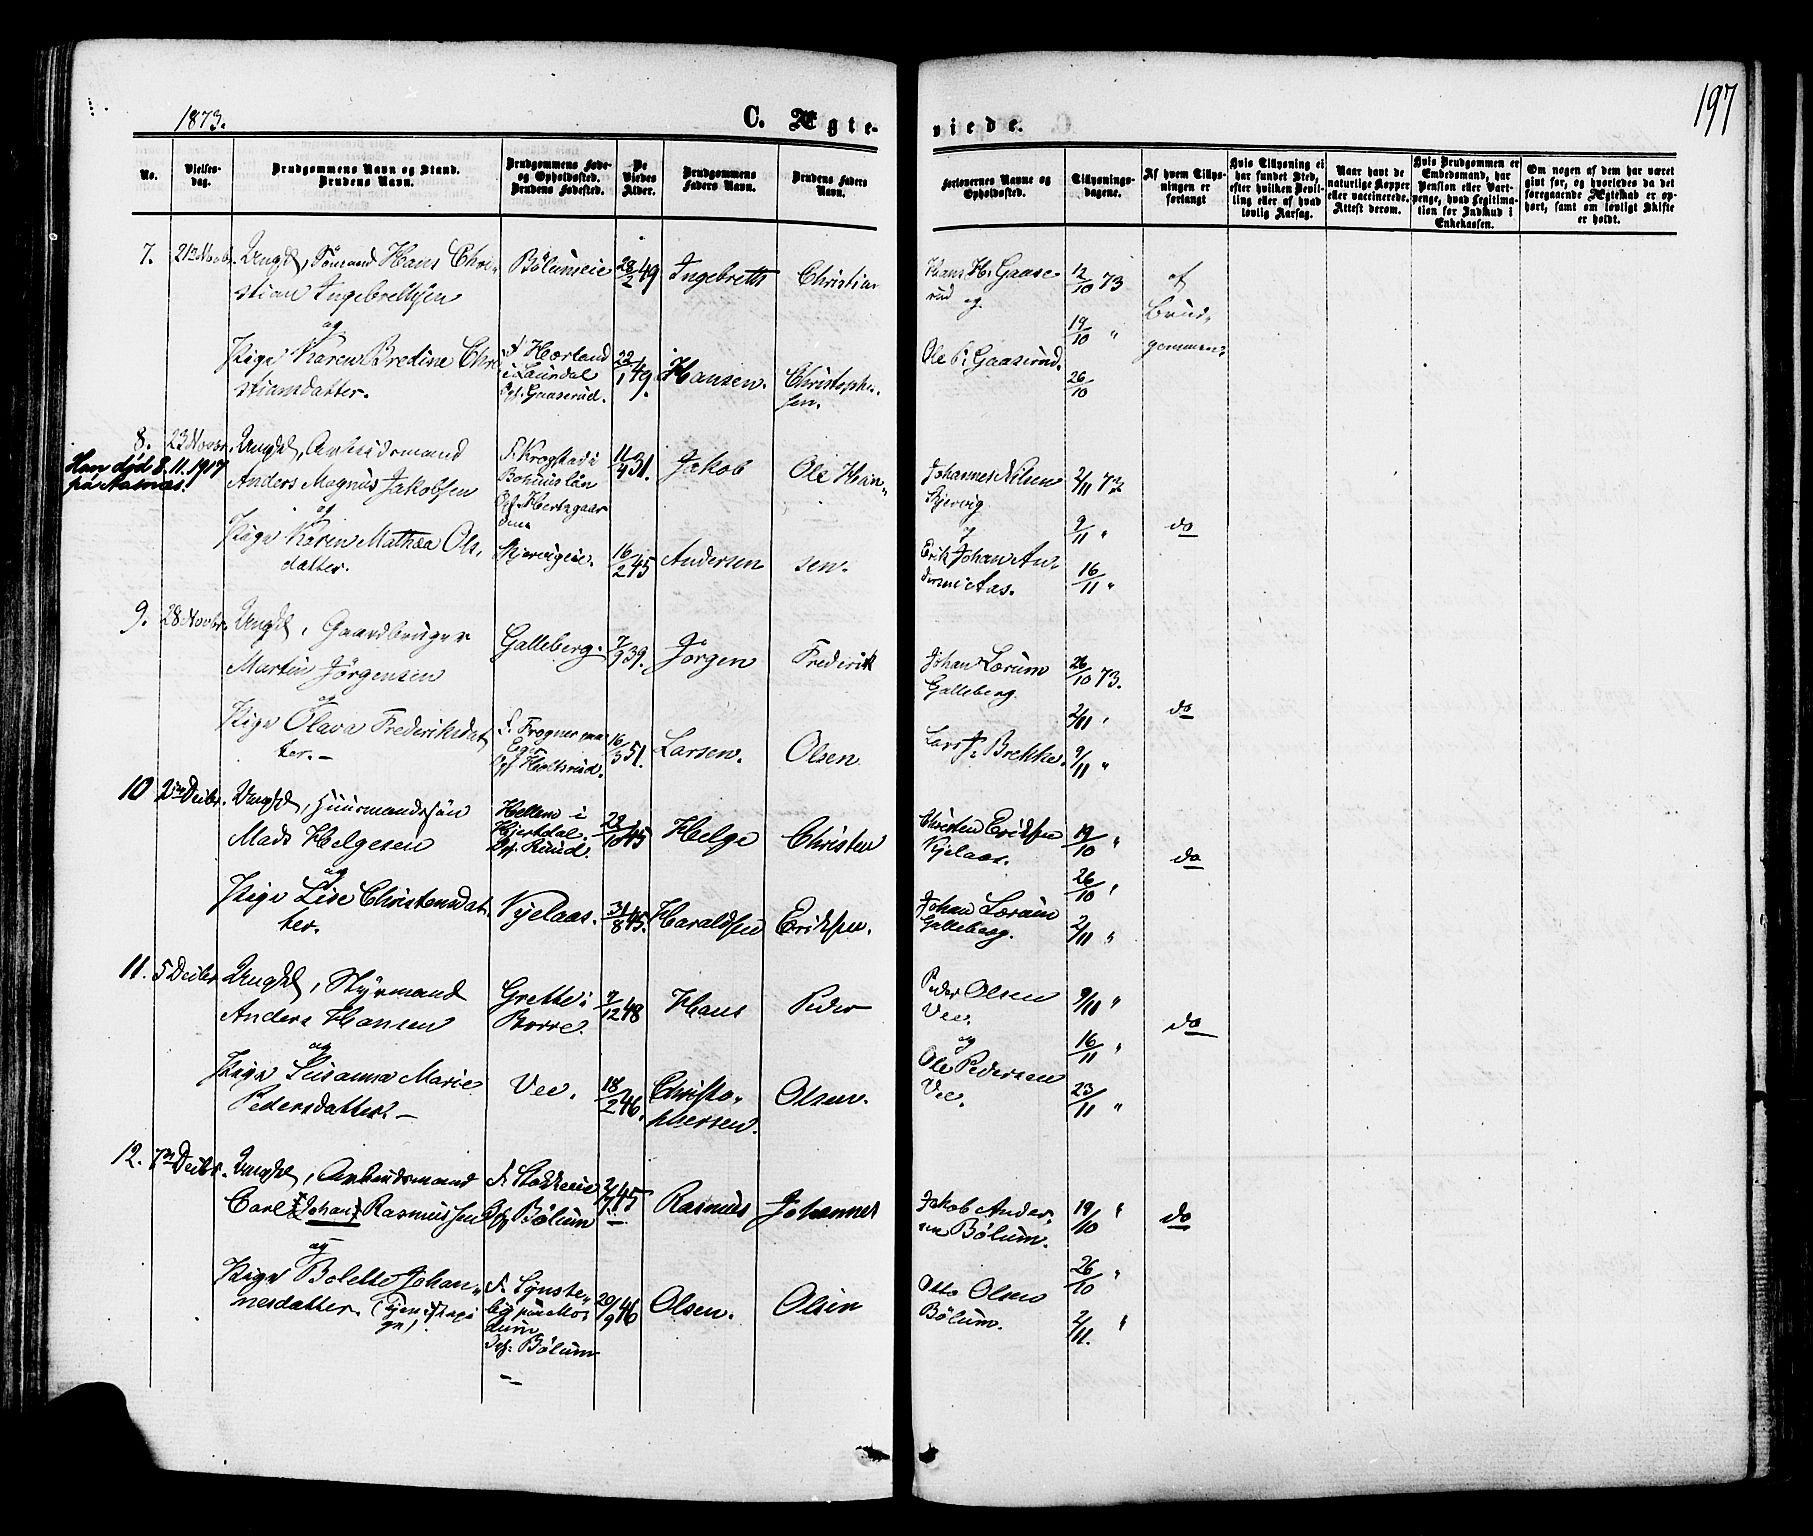 1873.
C. Ægte-
viede.
197
No.
Vielses-
dag.
Brudgommens Navn og Stand.
Brudens Navn.
Brudgommens Føde-
og Opholdssted.
Brudens Fødested.
De
Viedes
Alder.
Brudgommens
Faders Navn.
Brudens Faders
Navn.
Forlovernes Navne og
Opholdssted.
Tillysnings-
dagene.
Af hvem Tillys-
ningen er
forlangt
Hvis Tillysning ei
har fundet Sted,
efter hvilken Bevil-
ling eller af hvad
lovlig Aarsag.
Naar havt de
naturlige Kopper
eller vaccinerede.
Attest derom.
Hvis Brudgommen er
Embedsmand, har
Pension eller Vart-
penge, hvad Legitima-
tion for Indskud i
Enkekassen.
Om nogen af dem har været
givt før, og hvorledes da det
foregaaende Ægteskab er op-
hørt, samt om lovligt Skifte
er holdt.
7. 21de Novbr. Ungkl, Sömand Hans Chri-
stian Ingebrethsen
og
Pige Karen Bredine Chri
stiansdatter.
Bølumeie
f. Hørland
i Laurdal
Opf. Gaaserud.
28/2 49
22/1 49.
Ingebreth
Hansen.
Christian
Christophe-
sen.
Hans H. Gaase-
rud og
Ole P. Gaaserud.
12/10 73
19/10 "
26/10
af
Brud-
gommen.
8. 23 Novbr. Ungkl, Arbeidsmand
Anders Magnus Jakobsen
og
Pige Karen Mathea Ols-
datter.
Han død 8.11.1917
på Aasnæs.
f. Krogstad i
Bohuslän
Skjervigeie.
11/4 31.
16/2 45
Jakob
Andersen
Ole Hein-
sen.
Johannes Nilsen
Skjervig
og
Erik Johan An-
dersen Aas.
2/11 73
9/11 "
16/11 "
do
9. 28 Novbr. Ungkl, Gaardbruger
Martin Jörgensen
og
Pige Olava Frederiksdat
ter. –
Galleberg.
f. Frogner paa
Eger
Opf. Holtsrud.
7/9 39.
16/3 51.
Jörgen
Larsen.
Frederik
Olsen
Johan Lørum
Galleberg.
Lars J. Brekke.
26/10 73.
2/11 "
9/11 "
do
10 2den Decbr. Ungkl, Huusmandssøn
Mads Helgesen
og
Pige Lise Christensdat
ter.
Hellem i
Hjertdal.
Opf. Ruud.
Vjelaas.
28/10 45
31/8 45.
Helge
Haraldsen
Christen
Eriksen.
Christen Eriksen
Vjelaas.
Johan Lørum
Galleberg.
19/10 "
26/10 "
2/11 "
do
11. 5 Decbr. Ungkl, Styrmand
Anders Hansen
og
Pige Susanna Marie
Pedersdatter. –
Grette i
Borre.
Vee.
9/12 48
18/2 46.
Hans
Christo-
phersen.
Peder
Olsen.
Peder Olsen
Vee.
og
Ole Pedersen
Vee.
9/11 "
16/11 "
23/11 "
do
12. 7de Decbr. Ungkl, Arbeidsmand
Carl (Johan) Rasmussen
og
Pige Bolette Johan-
nesdatter.
f. Stokkeeie
Opf. Bølum
f. Synste-
by paa Mo-
dum
Opf. Bølum
2/7 45
20/9 46
Rasmus
Olsen.
Johannes
Olsen
Jakob Ander-
sen Bølum.
Otto Olsen
Bølum.
19/10 "
26/10 "
2/11. "
do